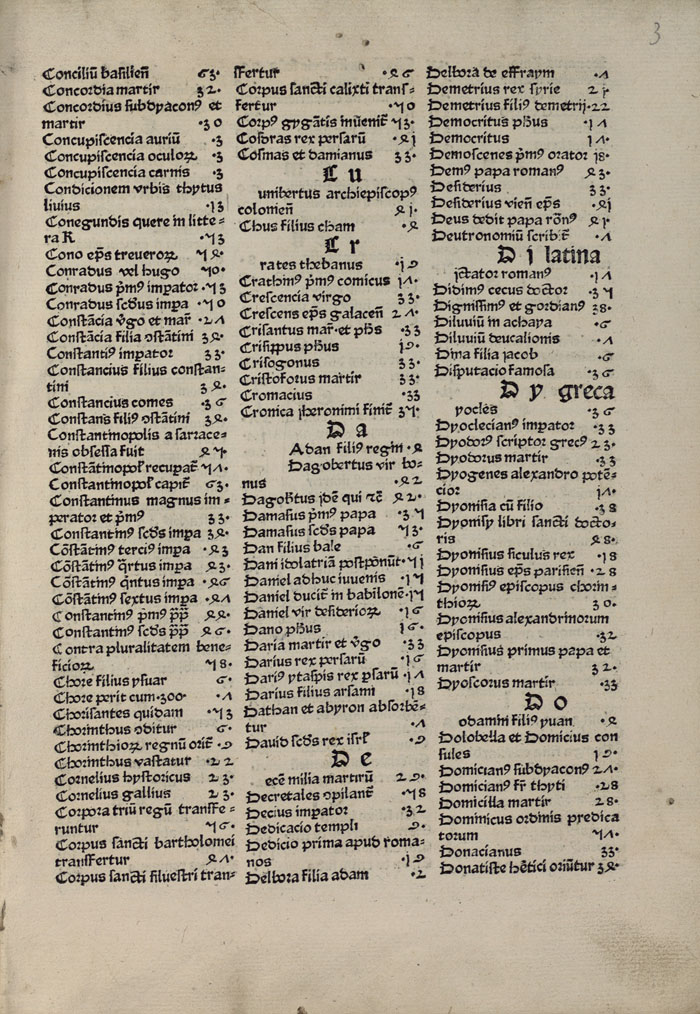 3
Conciliū basilien̄ 63·
Concordia martir 32·
Concordius subdyaconꝰ et
martir ·30
Concupiscencia auriū ·3
Concupiscencia oculoꝝ ·3
Concupiscencia carnis ·3
Condicionem vrbis thytus
liuius ·13
Conegundis quere in litte⸗
ra K ·73
Cono ep̄s treueroꝝ 74·
Conradus vel hugo 70·
Conradus pͫmꝰ impator ·73
Conradus scd̄us impa ·70
Constācia v̄go et mar̄ ·21
Constācia filia ↄstātini 34·
Constantiꝰ impator 33·
Constancius filius constan⸗
tini 34·
Constancius comes ·36
Constans filiꝰ ↄstātini 34·
Constantinopolis a sarrace⸗
nis obsessa fuit 47·
Constātinopol̄ recupat̄ 71·
Constantinopol̄ capit̄ 63·
Constantinus magnus im⸗
perator et pͫmꝰ 33·
Constantinꝰ scd̄s impa 34·
Cōstātinꝰ terciꝰ impa ·43
Cōstātinꝰ q̄rtus impa 43·
Cōstātinꝰ q̄ntus impa ·46
Cōstātinꝰ sextus impa ·41
Constantinꝰ pͫmꝰ p̄p̄ 44·
Constantinꝰ scd̄s p̄p̄ 46·
Contra pluralitatem bene⸗
ficioꝝ 78·
Chore filius ysuar 6·
Chore perit cum·300· ·1
Chorisantes quidam ·73
Chorinthus ↄditur 6·
Chorinthioꝝ regnū orit̄ ·9
Chorinthus vastatur ·22
Cornelius hystoricus 23·
Cornelius gallius 23·
Corpora triū regū transfe⸗
runtur 76·
Corpus sancti bartholomei
transfertur 41·
Corpus sancti siluestri tran⸗
sfertur ·46
Corpus sancti calixti trans⸗
fertur ·70
Corpꝰ gygātis īuēnit̄ 73·
Cosdras rex persarū ·41
Cosmas et damianus 33·
C u
unibertus archiepiscopꝰ
colonien̄ 41·
Chus filius cham ·4
C r
rates thebanus ·19
Crathinꝰ pͫmꝰ comicus 11·
Crescencia virgo 33·
Crescens ep̄s galacen̄ 21·
Crisantus mar̄·et pb̄s 33·
Crisippus pb̄us 19·
Crisogonus 33·
Cristoforus martir 33·
Cromacius ·33
Cronica iheronimi finit̄ 37·
D a
Adan filiꝰ regni ·4
Dagobertus vir bo⸗
nus ·42
Dagob̄tus idē qui &c̄ 42·
Damasus pͫmꝰ papa ·37
Damasus scd̄s papa 73·
Dan filius bale ·6
Dani idolatriā postponūt·71
Daniel adhuc iuuenis ·17
Daniel ducit̄ in babilonē·17
Daniel vir desiderioꝝ ·16
Dano pb̄us 16·
Daria martir et v̄go ·33
Darius rex persarū ·16
Dariꝰ ytaspis rex p̄sarū ·11
Darius filius arsami ·18
Dathan et abyron absorbē⸗
tur ·1
Dauid scd̄s rex isrl̄ ·9
D e
ecē milia martirū 29·
Decretales ↄpilant̄ ·78
Decius impator ·32
Dedicacio templi 9·
Dedicio prima apud roma⸗
nos ·19
Delbora filia adam ·2
Delbora de effraym ·1
Demetrius rex syrie 21·
Demetrius filiꝰ demetrij·22
Democritus pb̄us ·11
Democritus 11·
Demoscenes pͫmꝰ orator 18·
Demꝰ papa romanꝰ 43·
Desiderius 33·
Desiderius vien̄ ep̄s ·41
Deus dedit papa rōnꝰ 41·
Deutronomiū scribit̄ ·1
D i latina
ictator romanꝰ ·11
Didimꝰ cecus doctor ·37
Dignissimꝰ et gordianꝰ 38·
Diluuiū in achaya ·6
Diluuiū deucalionis ·1
Dina filia iacob ·6
Disputacio famosa ·36
D y greca
yocles ·36
Dyoclecianꝰ impator ·33
Dyodorꝰ scriptor grecꝰ 23·
Dyodorus martir ·33
Dyogenes alexandro potē⸗
cior 11·
Dyonisia cū filio ·38
Dyonisij libri sancti docto⸗
ris 48·
Dyonisius siculus rex ·18
Dyonisius ep̄s parisien̄ ·28
Dyonisiꝰ episcopus chorin⸗
thioꝝ 30·
Dyonisius alexandrinorum
episcopus ·32
Dyonisius primus papa et
martir 32·
Dyoscorus martir ·33
D o
odanim filiꝰ yuan ·4
Dolobella et Domicius con
sules 19·
Domicianꝰ subdyaconꝰ 21·
Domicianꝰ fr̄ thyti ·28
Domicilla martir 28·
Dominicus ordinis predica
torum 71·
Donacianus 33·
Donatiste h̄etici oriūtur 34·